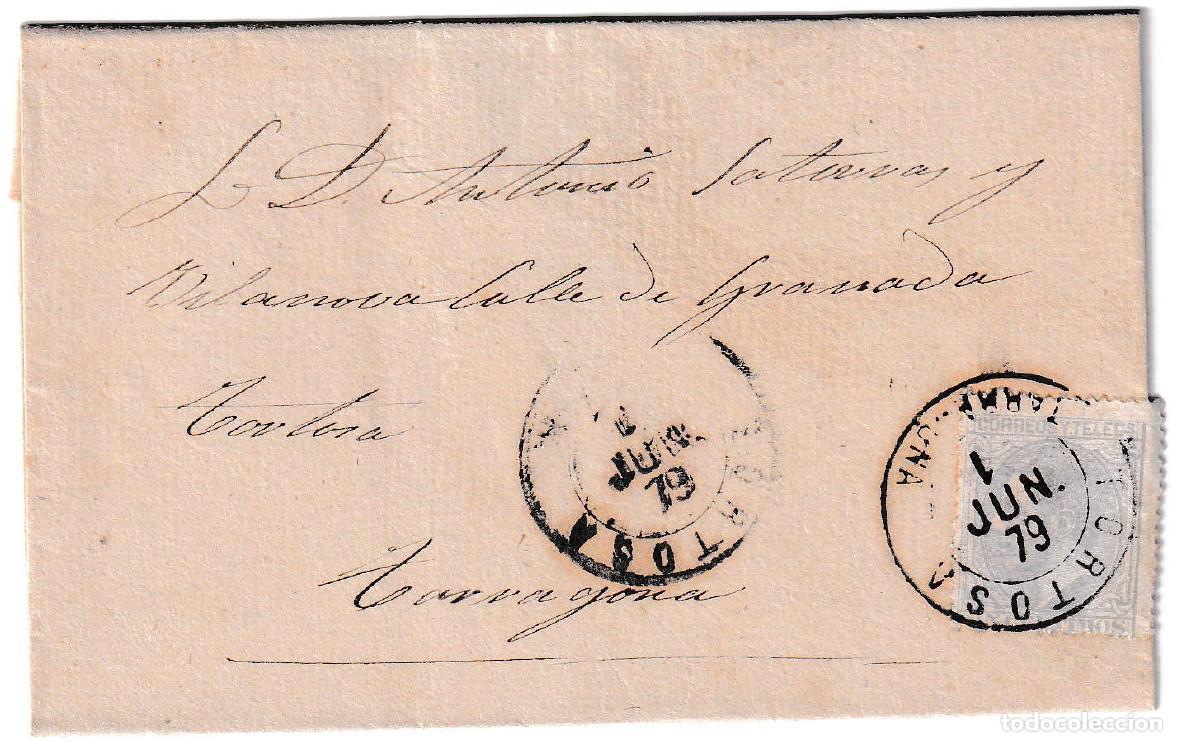 Sr D. Antonio y
Vilanova Calle de Granada
Tortosa
Tarragona
TORTOSA
1 JUN. 79
CORREOS Y TELEGS
TORTOSA
TARRAGONA
1
JUN.
79
todocoleccion